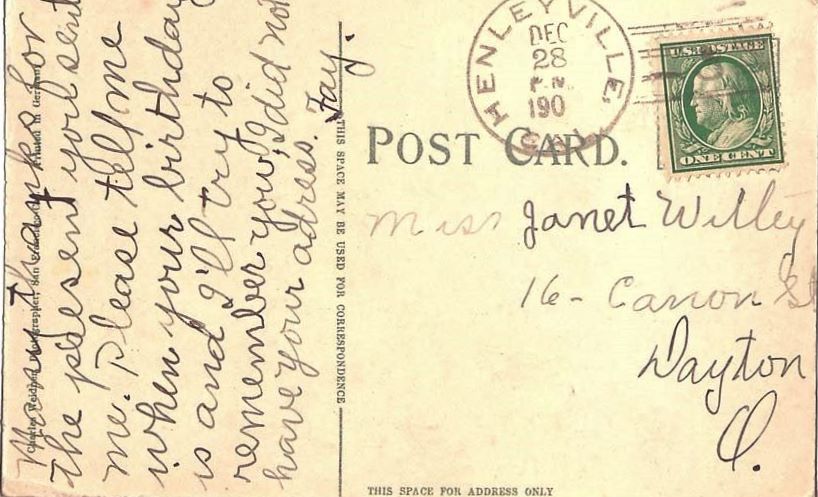 Many thanks for
the present you sent
me. Please tell me
when your birthday
is and I'll try to
remember you, I did not
have your adress. Fay.
THIS SPACE MAY BE USED FOR CORRESPONDENCE
HENLEYVILLE,
DEC
28
190
U.S. POSTAGE
ONE CENT
POST CARD.
Miss Janet Willey
16 - Canon St
Dayton
O.
THIS SPACE FOR ADDRESS ONLY